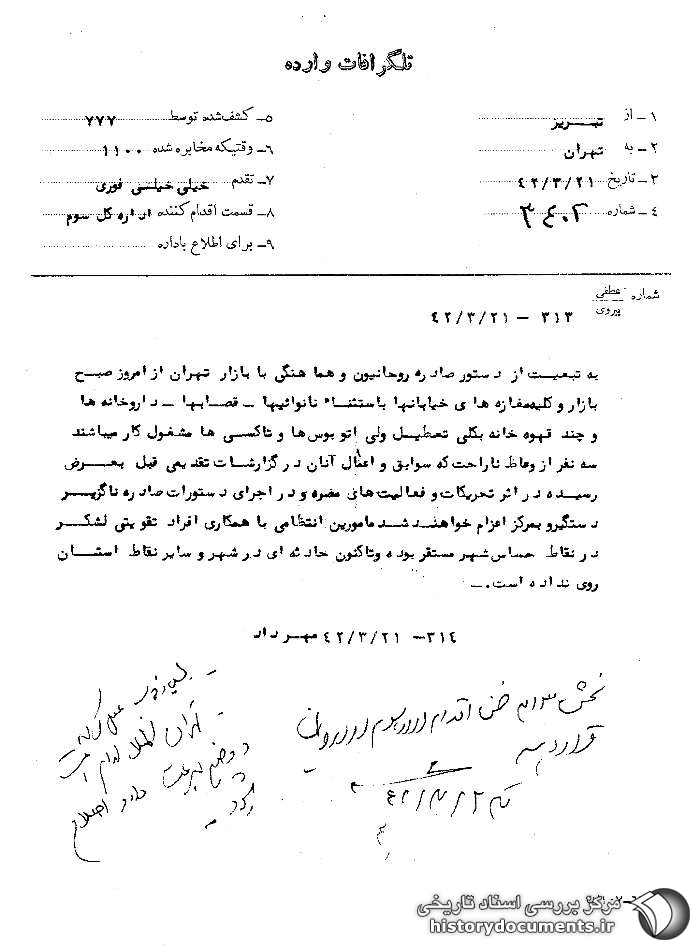 تلگرافات وارده
۱ـ از تبریز
۲ـ به تهران
۳ـ تاریخ ۴۲/۳/۲۱
۴ـ شماره ۳۴۰۲
۵ـ کشف‌شده توسط ۷۷۷
۶ـ وقتیکه مخابره شده ۱۱۰۰
۷ـ تقدم خیلی خیلی فوری
۸ـ قسمت اقدام کننده اداره کل سوم
۹ـ برای اطلاع باداره
شماره عطفی
پیروی
۳۱۳ – ۴۲/۳/۲۱
به تبعیت از دستور صادره روحانیون و هماهنگی با بازار تهران از امروز صبح
بازار و کلیه مغازه های خیابانها باستثناء نانوائیها ـ قصابها ـ داروخانه ها
و چند قهوه خانه بکلی تعطیل ولی اتوبوس‌ها و تاکسی ها مشغول کار میباشند
سه نفر از وعاظ ناراحت که سوابق و اعمال آنان در گزارشات تقدیمی قبل بعرض
رسیده در اثر تحریکات و فعالیت‌های مضره و در اجرای دستورات صادره ناگزیر
دستگیر و بمرکز اعزام خواهند شد مامورین انتظامی با همکاری افراد تقویتی لشکر
در نقاط حساس شهر مستقر بوده و تاکنون حادثه ای در شهر و سایر نقاط استان
روی نداده است.ـ
۳۱۴– ۴۲/۳/۲۱ مهرداد
بخش ۳۱۳ ضمن اقدام
قرار دهید
مرکز بررسی اسناد تاریخی
historydocuments.ir